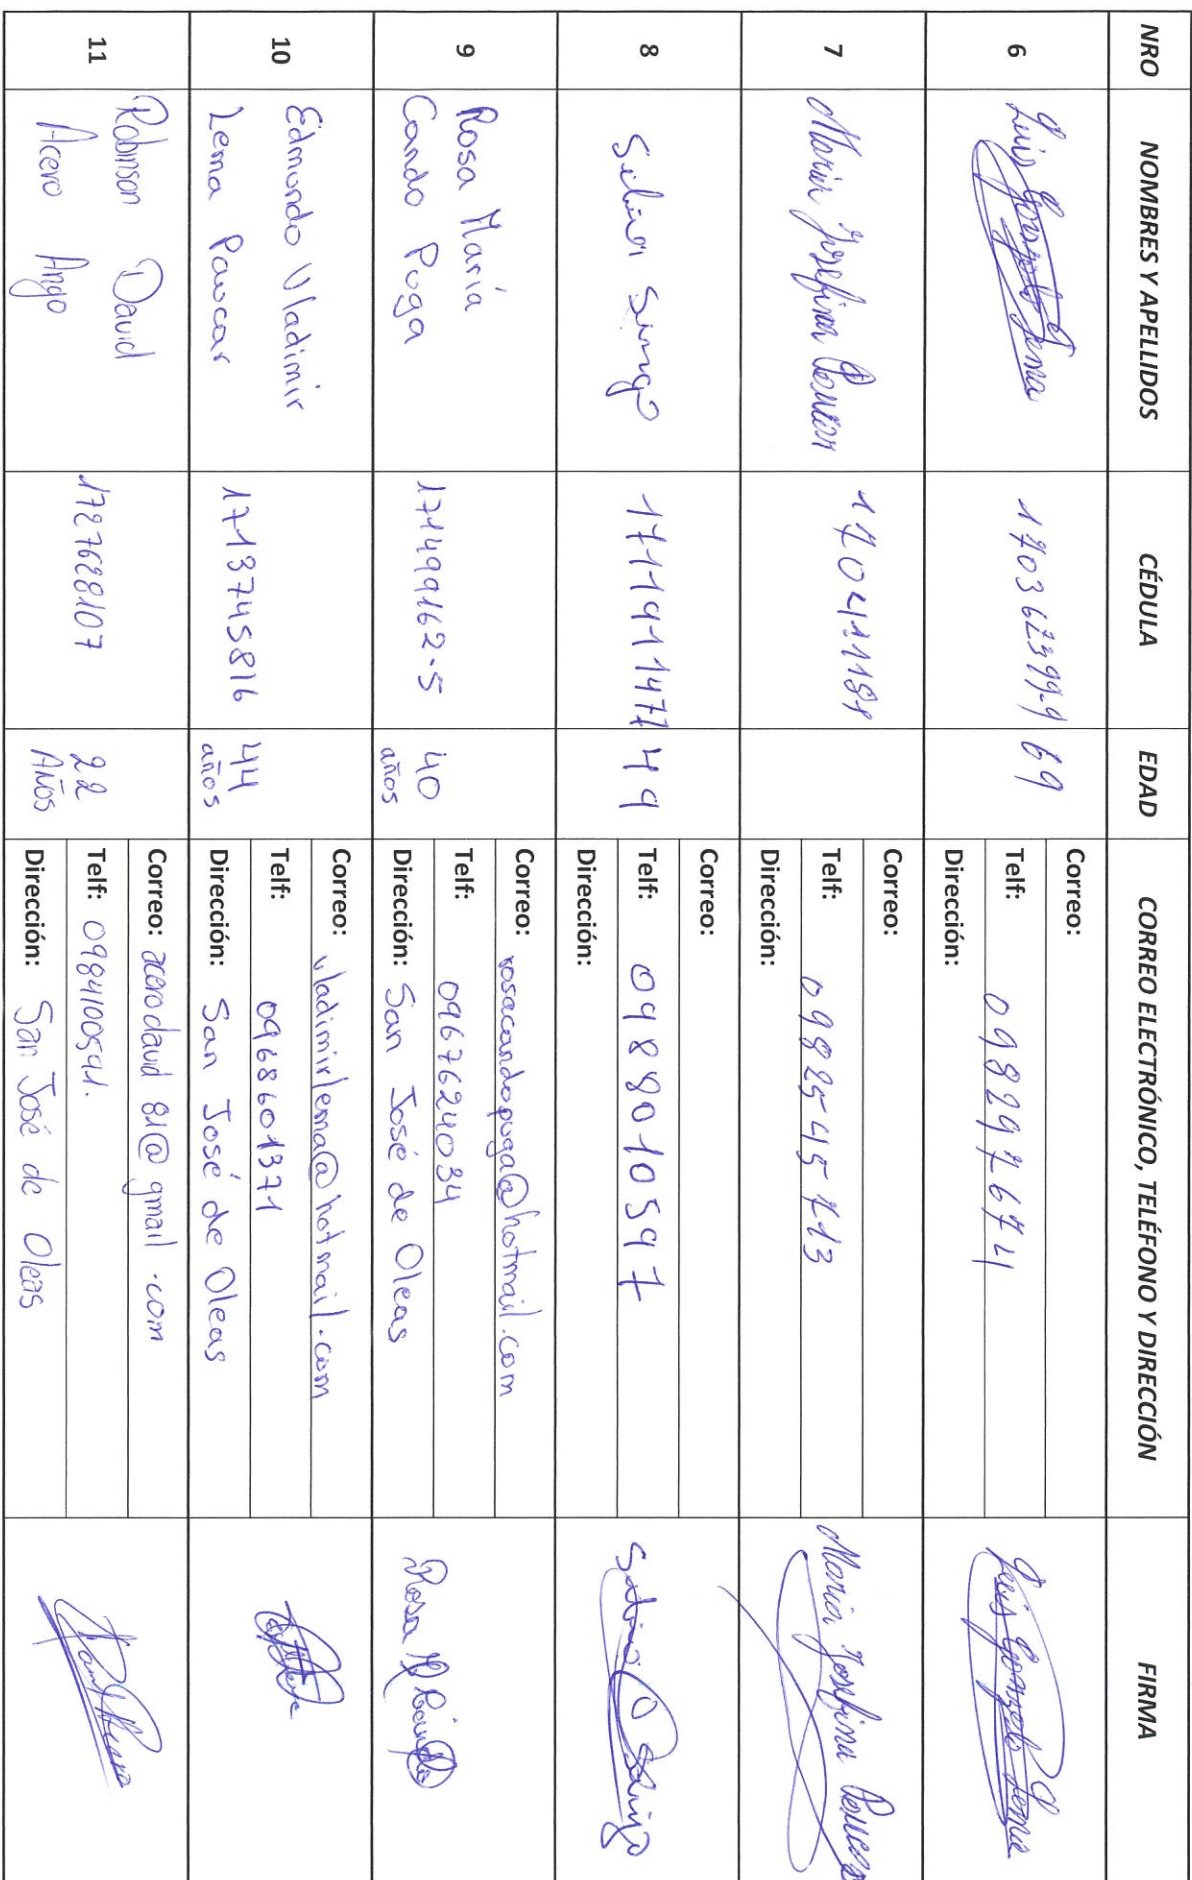 NRO NOMBRES Y APELLIDOS CÉDULA EDAD CORREO ELECTRÓNICO, TELÉFONO Y DIRECCIÓN FIRMA
6 Luis Gonzalo Lema 170362399-9 69
Correo:
Telf: 0982976741
Dirección:
Luis Gonzalo Lema
7 Maria Josefina 1704111881
Correo:
Telf: 0982545713
Dirección:
Maria Josefina
8 1711911477 49
Correo:
Telf: 0988010597
Dirección:
9 Rosa María
Cando Puga
171499162-5
40
años
Correo: rosacandopuga@hotmail.com
Telf: 0967624034
Dirección: San José de Oleas
Rosa M
10 Edmundo Vladimir
Lema Paucar
1713745816
44
años
Correo: vladimirlema@hotmail.com
Telf: 0968601371
Dirección: San José de Oleas
11 Robinson David
Acero Ango
1727628107
22
Años
Correo: acerodavid81@gmail.com
Telf: 0984100591.
Dirección: San José de Oleas